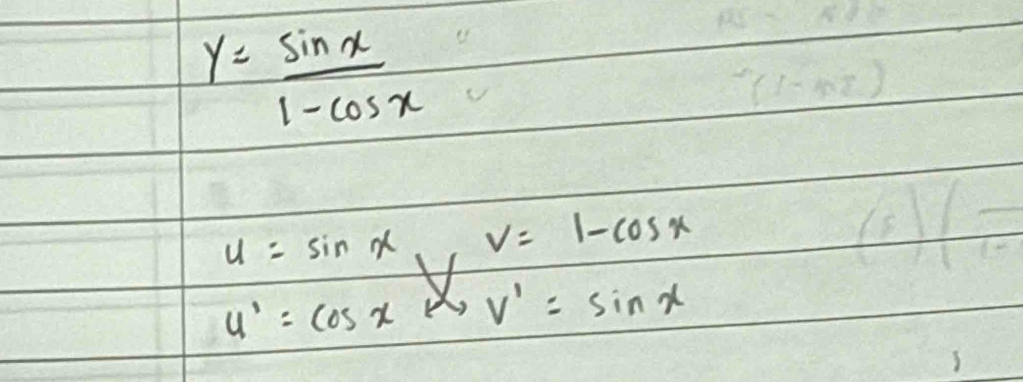 y = sin x
1 - cos x
u = sin x v = 1 - cos x
u' = cos x v' = sin x